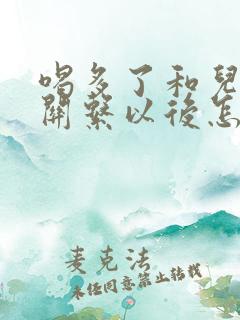 喝多了和兒
關繫以後怎
麦克法
未经同意禁止转载